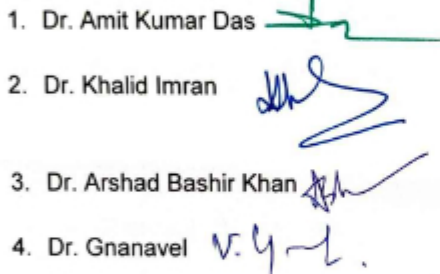 1. Dr. Amit Kumar Das
2. Dr. Khalid Imran
3. Dr. Arshad Bashir Khan
4. Dr. Gnanavel